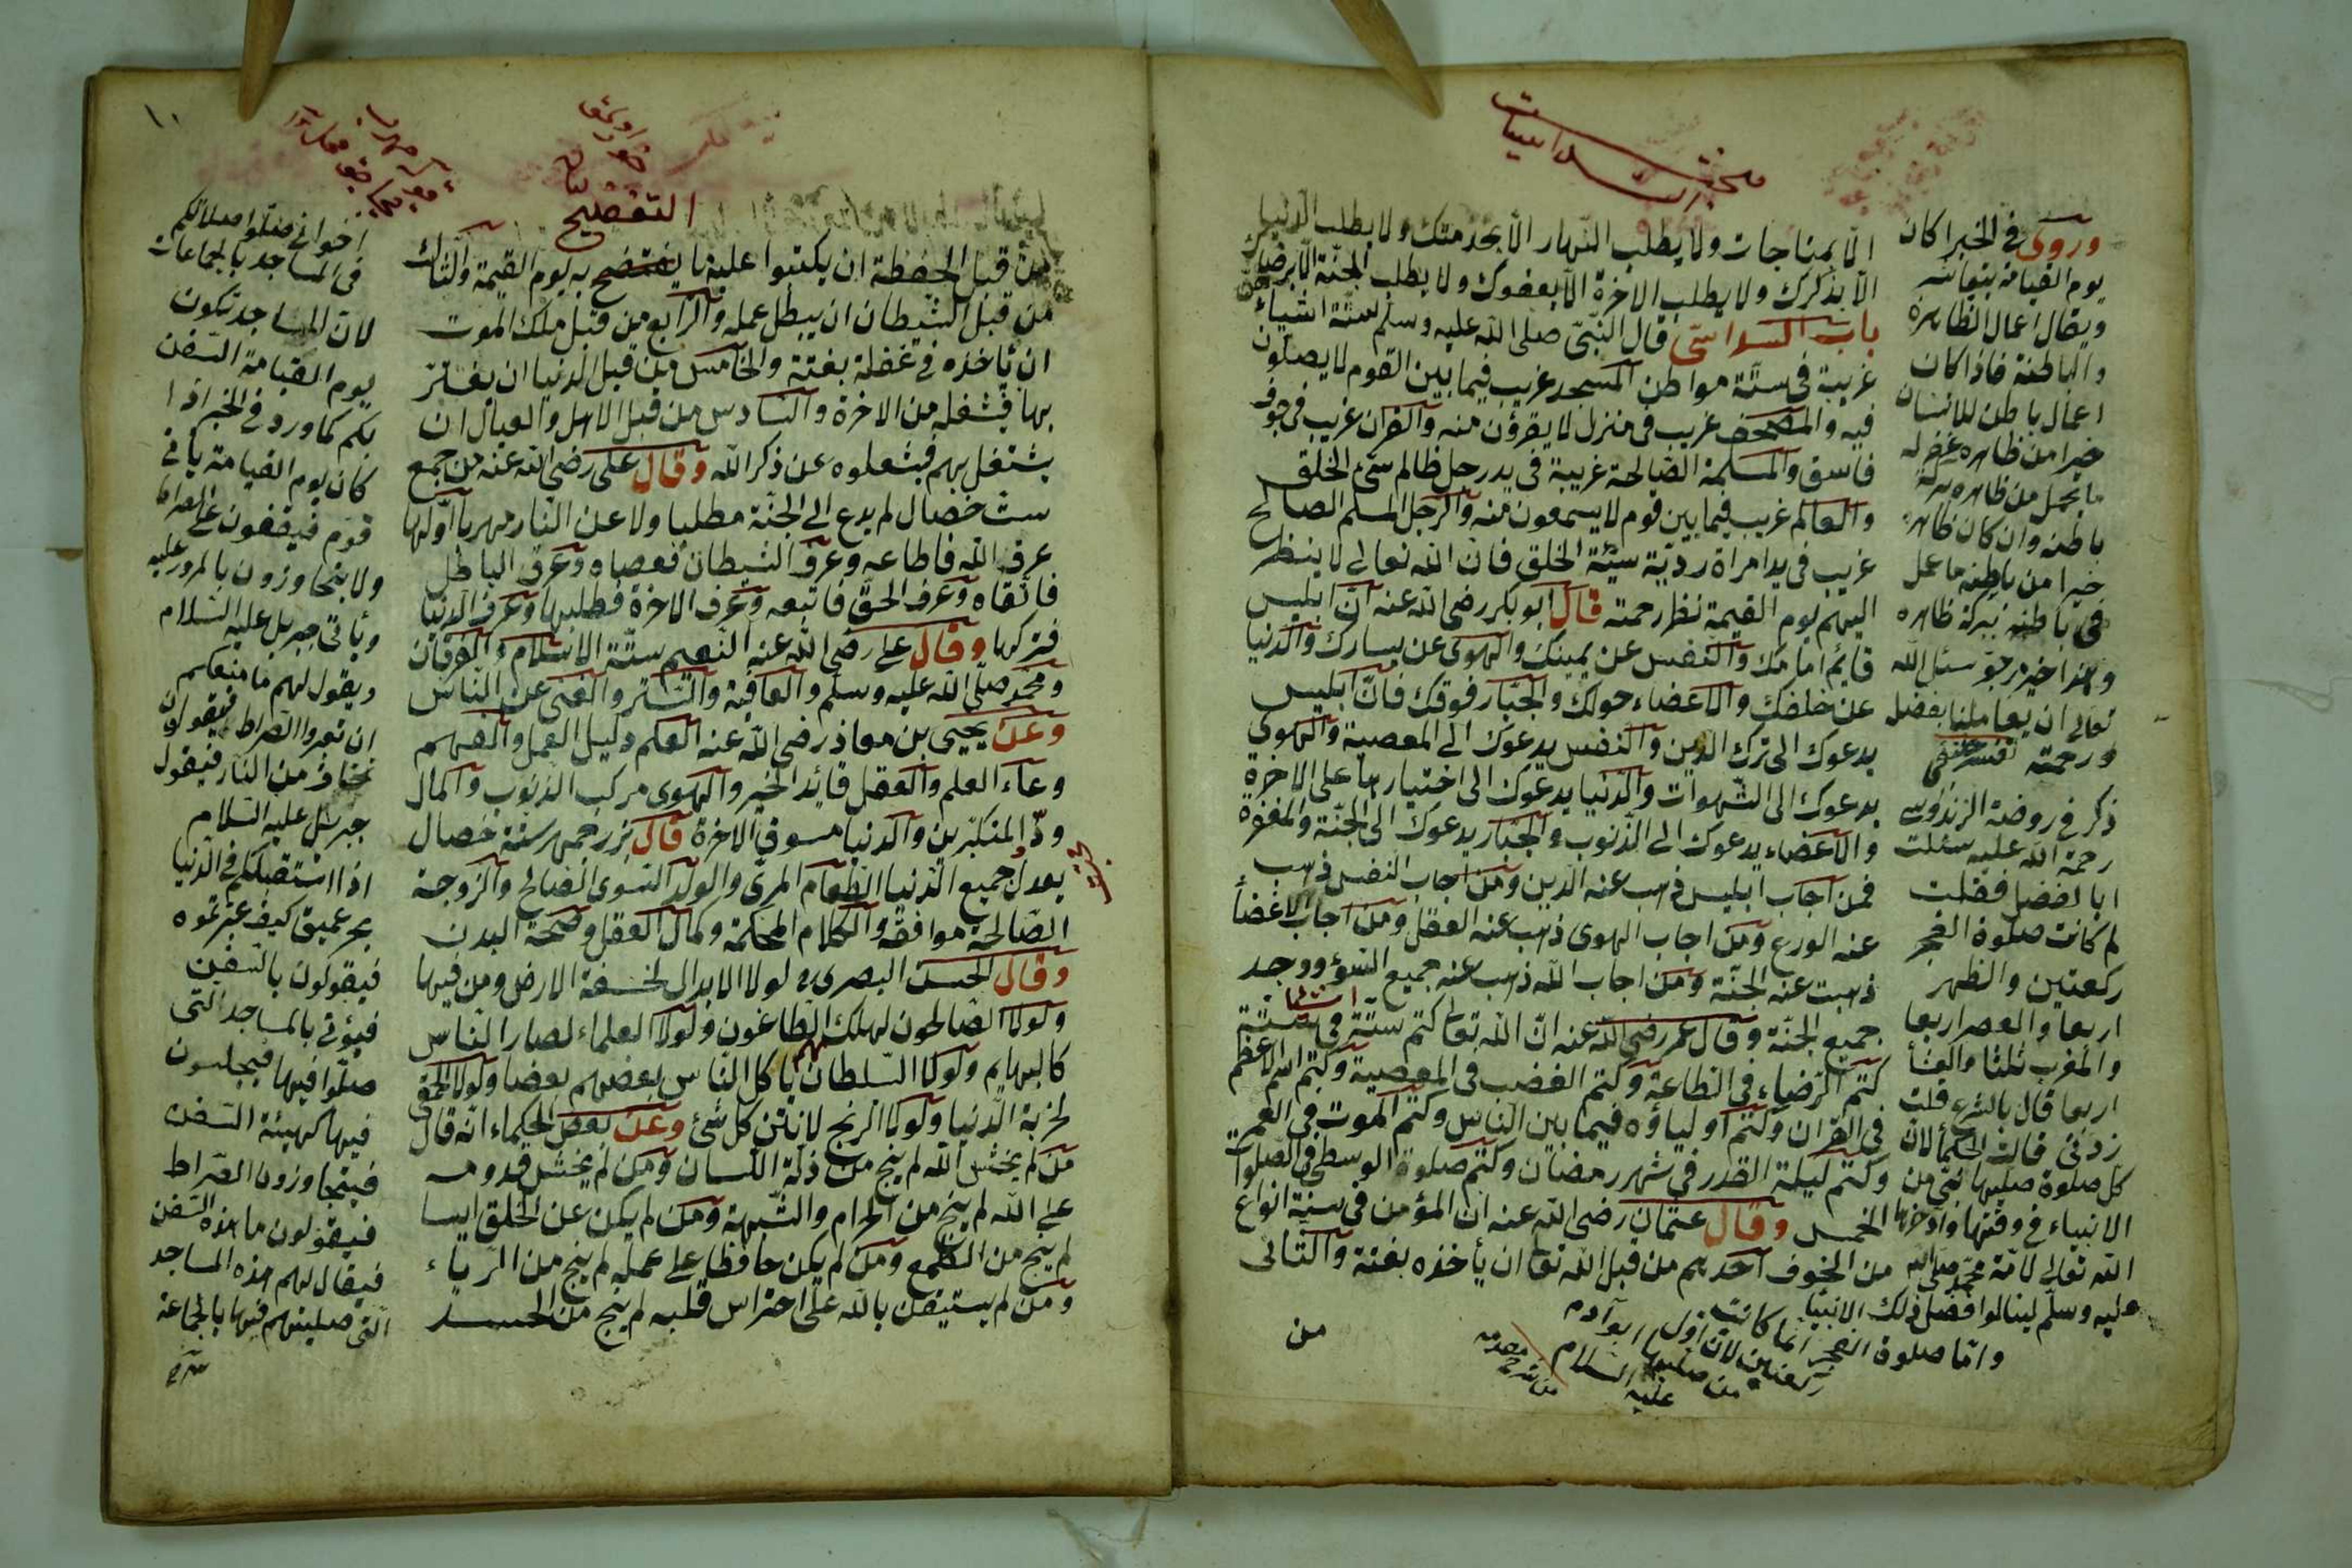 الا بمناجات ولا يطلب النهار الا بخدمتك ولا يطلب الدنيا
الا بذكرك ولا يطلب الاخرة الا بعفوك ولا يطلب الجنة الا برضاك
باب السداسى قال النبى صلى الله عليه وسلم ستة اشياء
غريبة فى ستة مواطن المسجد غريب فيما بين القوم لا يصلون
فيه والمصحف غريب فى منزل لا يقرؤن منه والقران غريب فى جوف
فاسق والمسلمة الصالحة غريبة فى يد رجل ظالم سئ الخلق
والعالم غريب فيما بين قوم لا يسمعون منه والرجل المسلم الصالح
غريب فى يد امراة ردية سيئة الخلق فان الله تعالى لا ينظر
اليهم يوم القيمة نظر رحمة قال ابو بكر رضى الله عنه ان ابليس
قائم امامك والنفس عن يمينك والهوى عن يسارك والدنيا
عن خلفك والاعضاء حولك والجبار فوقك فان ابليس
يدعوك الى ترك الدين والنفس يدعوك الى المعصية والهوى
يدعوك الى الشهوات والدنيا يدعوك الى اختيارها على الاخرة
والاعضاء يدعوك الى الذنوب والجبار يدعوك الى الجنة والمغفرة
فمن اجاب ابليس ذهب عنه الدين ومن اجاب النفس ذهب
عنه الورع ومن اجاب الهوى ذهب عنه العقل ومن اجاب الاعضأ
ذهبت عنه الجنة ومن اجاب الله ذهب عنه جميع السوء ووجد
جميع الجنة وقال عمر رضى الله عنه ان الله تعالى كتم ستة فى ستة اشيا
كتم الرضاء فى الطاعة وكتم الغضب فى المعصية وكتم اسم الاعظم
فى القران وكتم اولياؤه فيما بين الناس وكتم الموت فى العمر
وكتم ليلة القدر فى شهر رمضان وكتم صلوة الوسطى فى الصلوات
الخمس وقال عثمان رضى الله عنه ان المؤمن فى ستة انواع
من الخوف احدهم من قبل الله تعالى ان يأخذه بغتة والثانى
من
وروى فى الخبر اذا كان
يوم القيامة
ويقال اعمال الظاهرة
والباطنة فاذا كان
اعمال باطن للانسان
خيرا من ظاهره غفر له
باطنه وان كان ظاهره
خيرا من باطنه ما عمل
فى باطنه ببركة ظاهره
تعالى ان يعاملنا بفضل
ورحمة
ذكر فى روضة الزندوسى
رحمة الله عليه سئلت
ابا لفضل فقلت
لم كانت صلوة الفجر
ركعتين والظهر
اربعا والعصر اربعا
والمغرب ثلثا والعشأ
اربعا قال بالشرع قلت
زدنى قالت الحكمأ لان
كل صلوة صليها نبى من
الانبياء فى وقتها وادخرها
الله تعالى لامة محمد صلى الله
عليه وسلم لينالوا افضل ذلك الانبيأ
واما صلوة الفجر انما كانت
ركعتين لان اول
من صليها ابو آدم
عليه السلام
١٠
التفضيح
من قبل الحفظة ان يكتبوا عليه ما يفتضح به يوم القيمة والثالث
من قبل الشيطان ان يبطل عمله والرابع من قبل ملك الموت
ان يأخذه فى غفلة بغتة والخامس من قبل الدنيا ان يغتر
بها فيشغله من الاخرة والسادس من قبل الاهل والعيال ان
يشتغل بهم فيشغلوه عن ذكر الله وقال على رضى الله عنه من جمع
ست خصال لم يدع الى الجنة مطلبا ولا عن النار مهربا اولها
عرف الله فاطاعه وعرف الشيطان فعصاه وعرف الباطل
فاتقاه وعرف الحق فاتبعه وعرف الاخرة فطلبها وعرف الدنيا
فتركها وقال على رضى الله عنه النعيم ستة الاسلام والقرقان
ومحمد صلى الله عليه وسلم والعافية والستر والغنى عن الناس
وعن يحيى بن معاذ رضى الله عنه العلم دليل العمل والفهم
وعاء العلم والعقل قائد الخير والهوى مركب الذنوب والمال
ردّ المتكبرين والدنيا سوق الاخرة قال بزرجمهر ستة خصال
يعدل جميع الدنيا الطعام المرى والولد السوى الصالح والزوجة
الصالحة موافقة والكلام المحكمة وكمال العقل وصحة البدن
وقال الحسن البصرى لولا الابدال لخسفة الارض ومن فيها
ولولا الصالحون لهلك الطاغون ولولا العلماء لصار الناس
كالبهايم ولولا السلطان يأكل الناس بعضهم بعضا ولولا الحمقى
لخربة الدنيا ولولا الريح لانتن كل شئ وعن بعض الحكماء انه قال
من لم يخش الله لم ينج من ذلة اللسان ومن لم يخش قدومه
على الله لم ينج من الحرام والشبهة ومن لم يكن عن الخلق ايسا
لم ينج من الطمع ومن لم يكن حافظا على عمله لم ينج من الرياء
ومن لم يستيقن بالله على احتراس قلبه لم ينج من الحسد
اخوانى صلوا صلاتكم
فى المساجد بالجماعات
لان المساجد تكون
يوم القيامة السفن
بكم كما ورد فى الخبر اذا
كان يوم القيامة يأتى
قوم فيقفون على الصراط
ولا يتجاوزون بالمرور عليه
ويأتى جبريل عليه السلام
ويقول لهم ما منعكم
ان تعبروا الصراط فيقولون
نخاف من النار فيقول
جبرئل عليه السلام
اذا استقبلكم فى الدنيا
بحر عميق كيف عبرتموه
فيقولون بالسفن
فيؤتى بالمساجد التى
صلوا فيها فيجلسون
فيها كهيئة السفن
فيتجاوزون الصراط
فيقولون ما هذه السفن
فيقال لهم هذه المساجد
التى صليتهم فيها بالجماعة